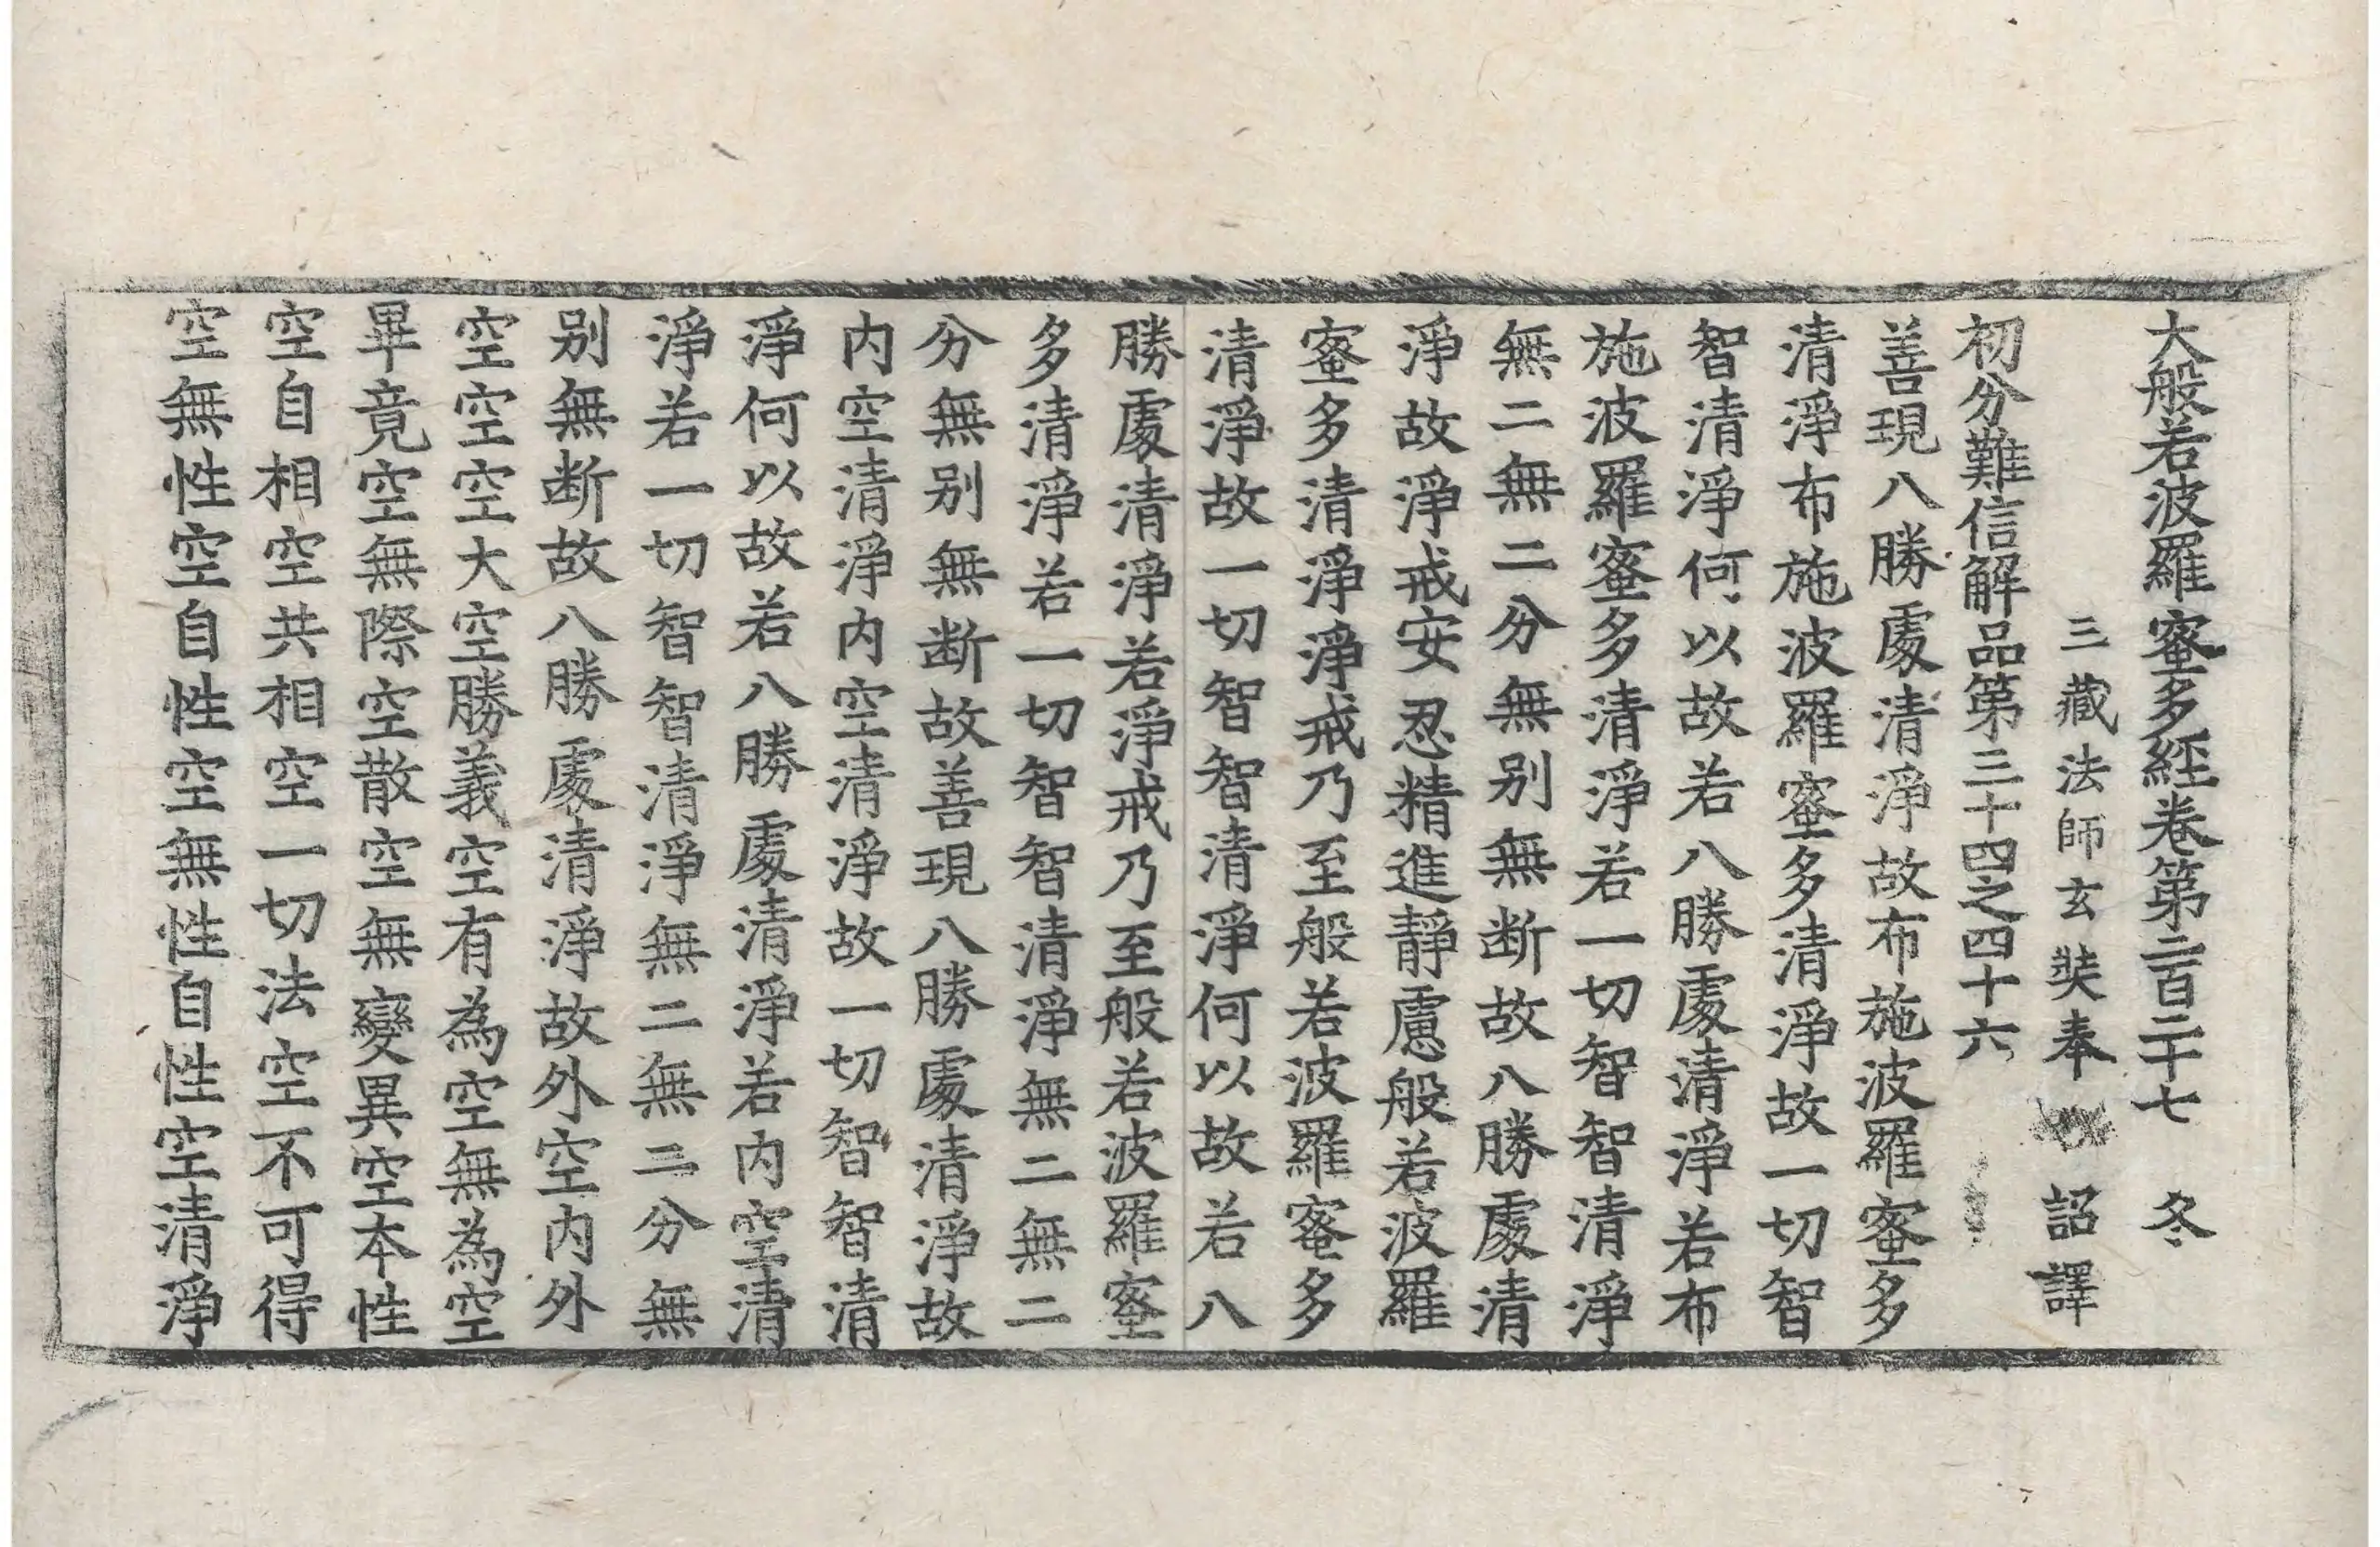 大般若波羅蜜多經卷第二百二十七 冬
三藏法師玄奘奉 詔譯
初分難信解品第三十四之四十六
善現八勝處清淨故布施波羅蜜多
清淨布施波羅蜜多清淨故一切智
智清淨何以故若八勝處清淨若布
施波羅蜜多清淨若一切智智清淨
無二無二分無別無断故八勝處清
淨故淨戒安忍精進靜慮般若波羅
蜜多清淨淨戒乃至般若波羅蜜多
清淨故一切智智清淨何以故若八
勝處清淨若淨戒乃至般若波羅蜜
多清淨若一切智智清淨無二無二
分無別無断故善現八勝處清淨故
內空清淨內空清淨故一切智智清
淨何以故若八勝處清淨若內空清
淨若一切智智清淨無二無二分無
別無断故八勝處清淨故外空內外
空空空大空勝義空有為空無為空
畢竟空無際空散空無變異空本性
空自相空共相空一切法空不可得
空無性空自性空無性自性空清淨